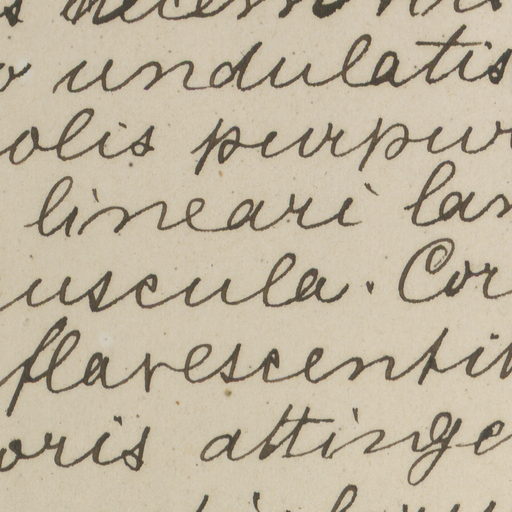 undulatis
olis purpur
lineari lan
uscula. Cor
flavescentib
oris attinge